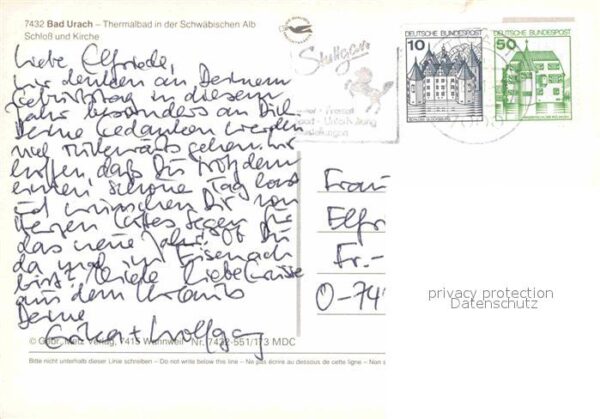 7432 Bad Urach – Thermalbad in der Schwäbischen Alb
Schloß und Kirche
Liebe Elfriede,
wir denken an Deinem
Geburtstag in diesem
Jahr besonders an Dich
Deine Gedanken werden
viel rückwärts gehen. Wir
hoffen, daß Du trotzdem
einen schönen Tag hast
und wünschen Dir von
Herzen Gottes Segen für
das neue Jahr. Du
da mal in Eisenach
bist? Viele liebe Grüsse
aus dem Urlaub
Deine
Erika + Wolfgang
Stuttgart
DEUTSCHE BUNDESPOST
10
DEUTSCHE BUNDESPOST
50
Frau
Elfr
Fr.-
O-74
privacy protection
Datenschutz
© Gebr. Metz Verlag, 7415 Wannweil Nr. 7432-551/173 MDC
Bitte nicht unterhalb dieser Linie schreiben – Do not write below this line – Ne pas écrire au dessous de cette ligne – Non s